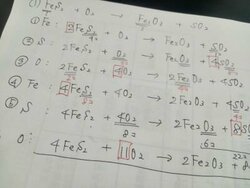 (1) FeS₂ + O₂ → Fe₂O₃ + SO₂
① Fe: 2FeS₂ + O₂ → Fe₂O₃ + SO₂
② S: 2FeS₂ + O₂ → Fe₂O₃ + 4SO₂
③ O: 2FeS₂ + 4O₂ → 2Fe₂O₃ + 4SO₂
④ Fe: 4FeS₂ + 4O₂ → 2Fe₂O₃ + 4SO₂
⑤ S: 4FeS₂ + 4O₂ → 2Fe₂O₃ + 8SO₂
O: 4FeS₂ + 11O₂ → 2Fe₂O₃ + 8